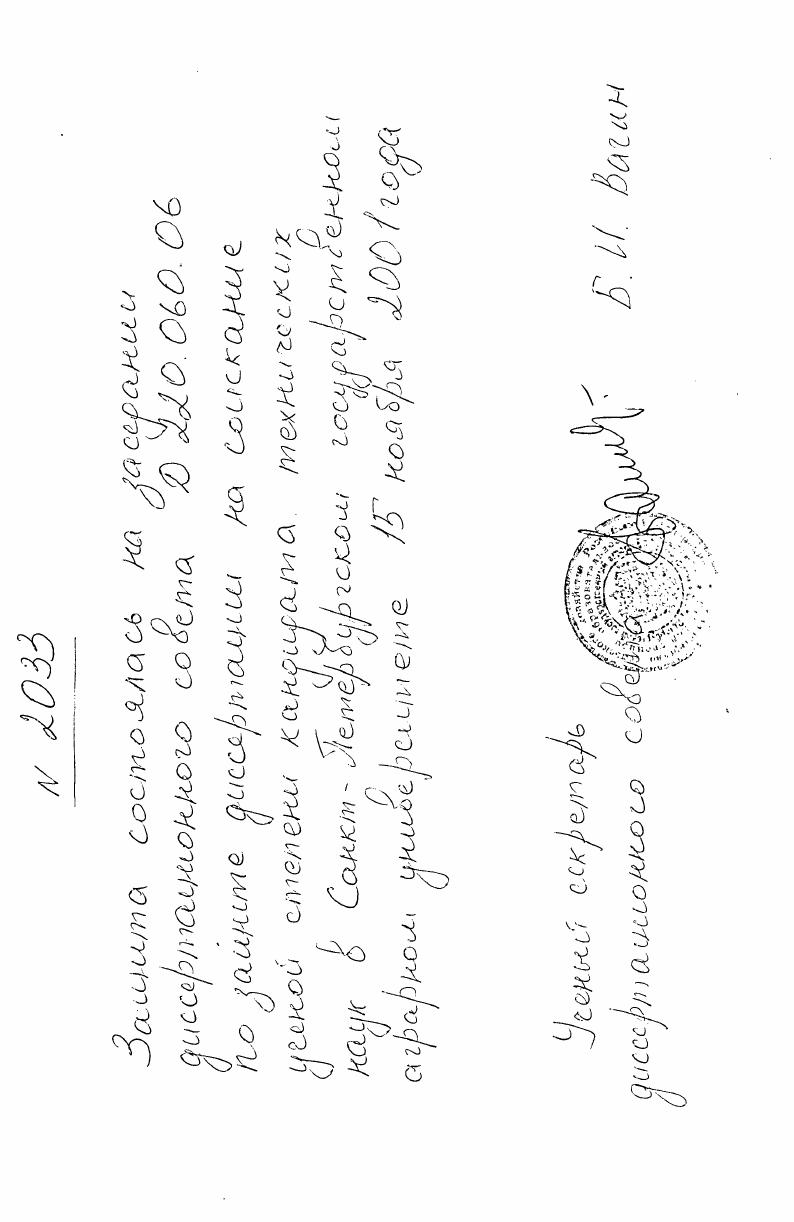 N 2033
Защита состоялась на заседании
диссертационного совета Д 220.060.06
по защите диссертации на соискание
ученой степени кандидата технических
наук в Санкт-Петербургском государственном
аграрном университете 15 ноября 2001 года
Ученый секретарь
диссертационного совета Б.И. Вагин